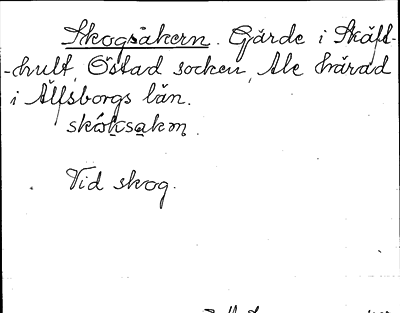 Skogsåkern. Gärde i Skäfs-
-hult, Östad socken, Ale härad
i Älfsborgs län.
Vid skog.